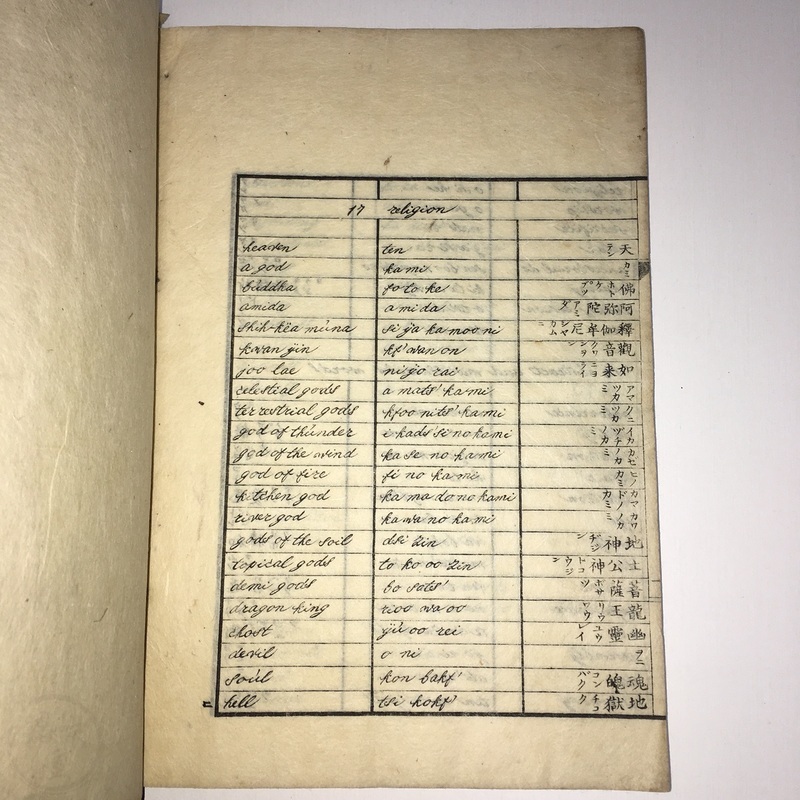 17 religion
heaven ten 天 テン
a god ka mi カミ
búddha fo to ke 佛 ホトケ ブツ
amida a mi da 阿弥陀 アミダ
shih-këa múna si ya ka moo ni 釋伽牟尼 シヤカムニ
kwan yin kf'wan on 觀音 クワンヲン
joo lae ni yo rai 如来 ニヨライ
celestial gods a mats' ka mi アマツカミ
terrestrial gods kfoo nits' ka mi クニツカミ
god of thúnder i kadsŭsi no kami イカヅチノカミ
god of the wind ka se no kami カセノカミ
god of fire fi no ka mi ヒノカミ
kitchen god ka ma do no kami カマドノカミ
river god ka wa no ka mi カワノカミ
gods of the soil dsi zin 地神 ヂジン
topical gods to ko oo zin 土公神 トコウジン
demi gods bo sats' 菩薩 ボサツ
dragon king rioo wa oo 龍王 リウワウ
chost yú oo rei 幽靈 ユウレイ
devil o ni ヲニ
soúl kon bakf' 魂魄 コンパク
hell tsi kokf' 地獄 チコク